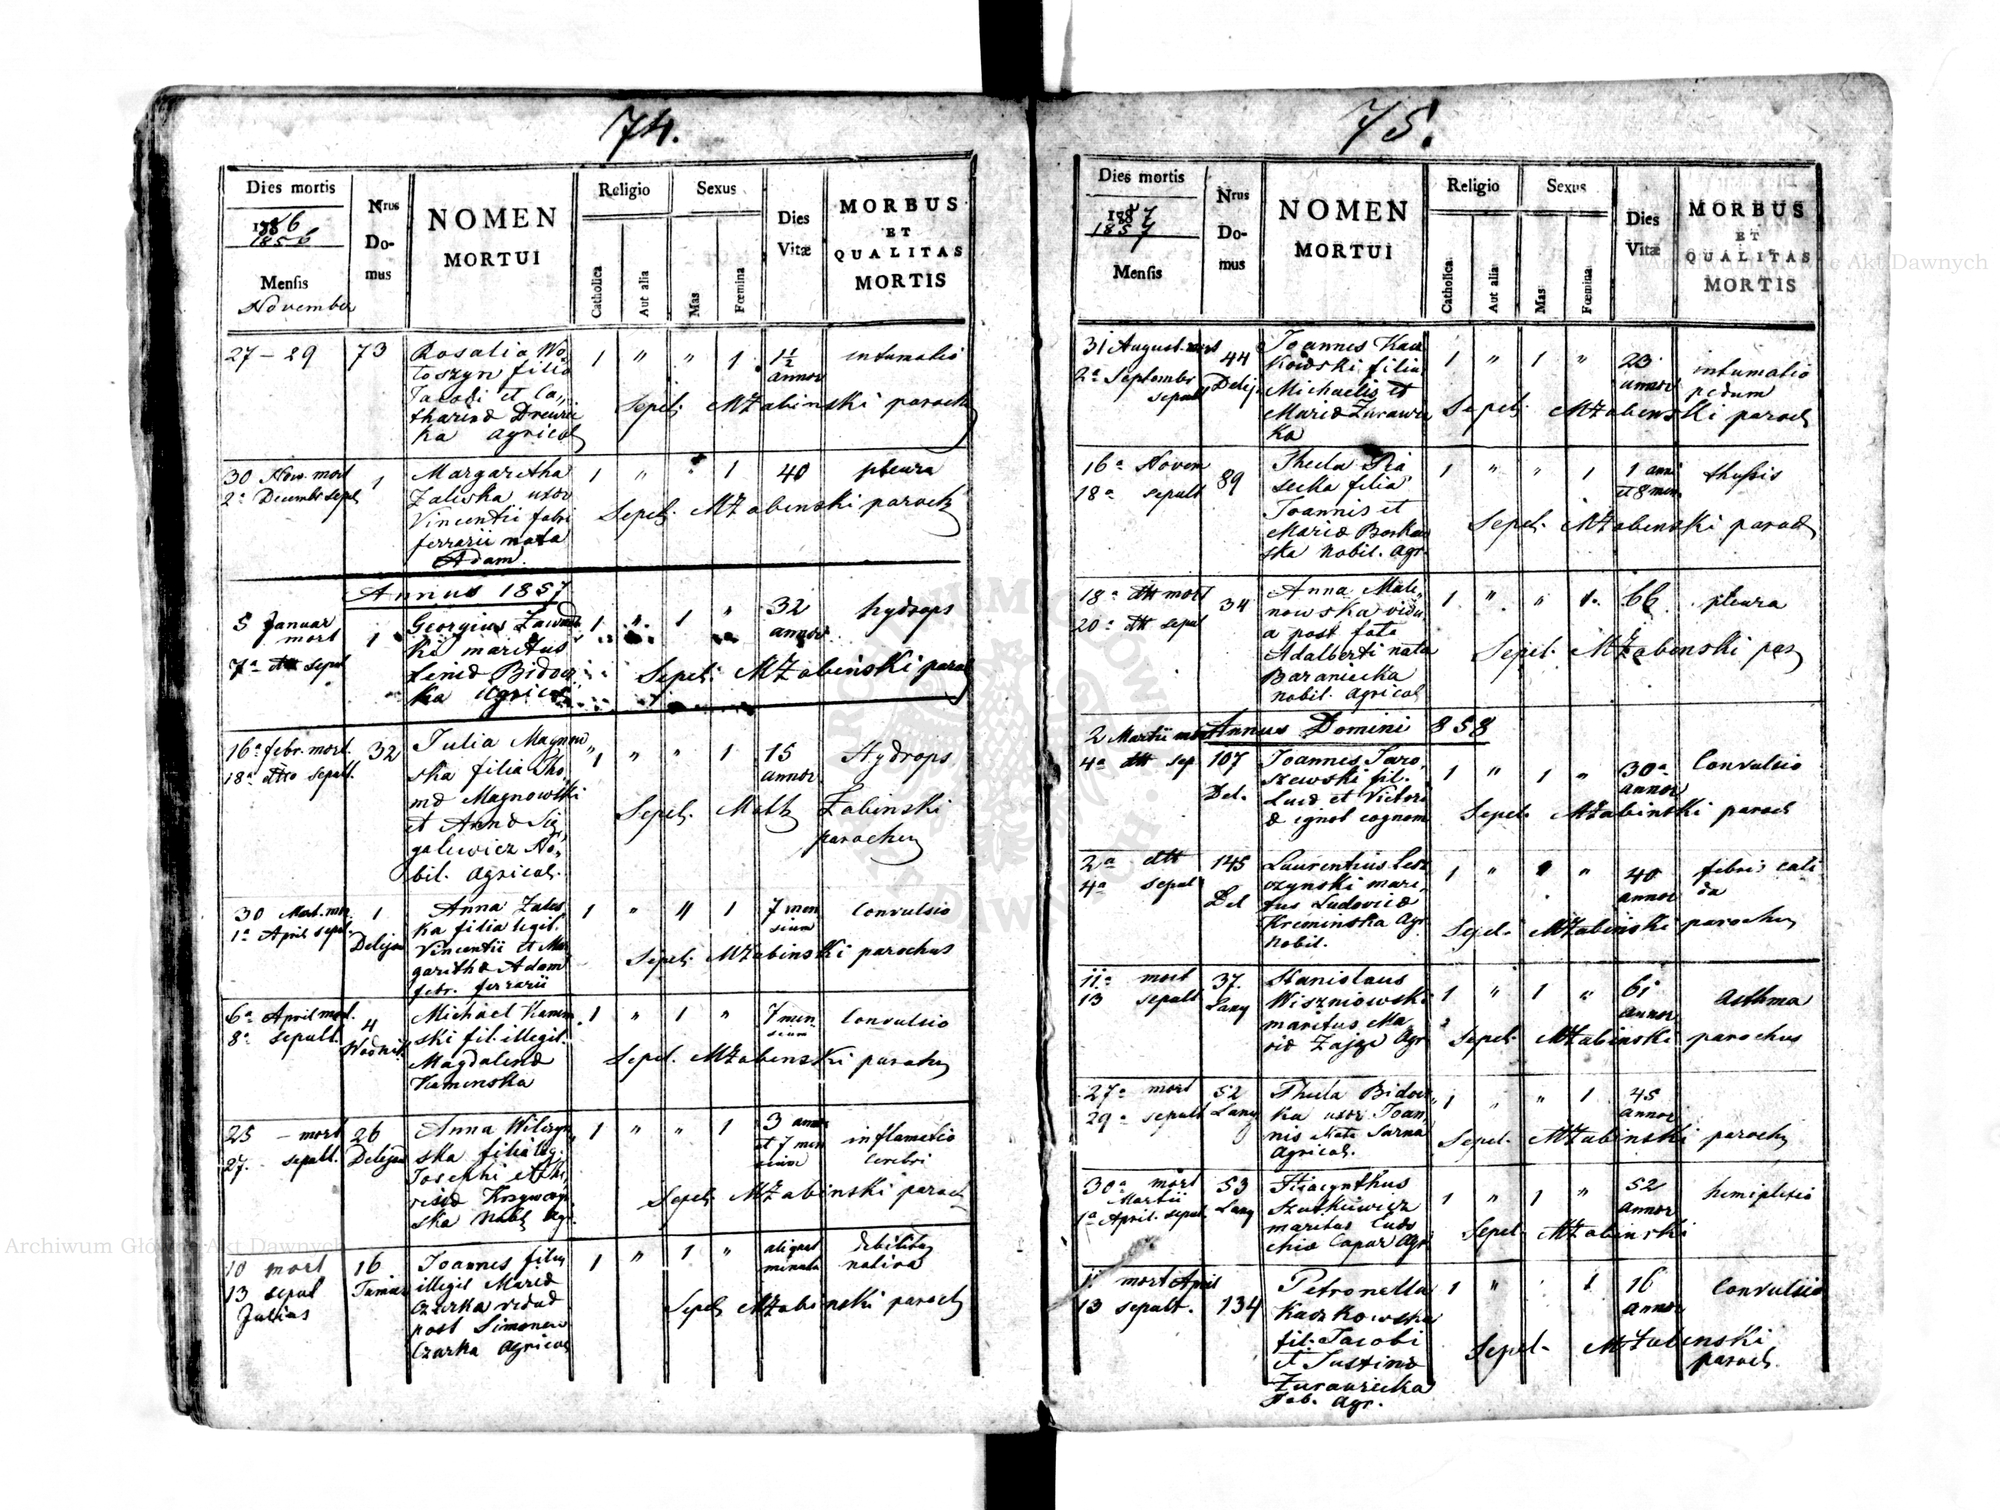 74.
Dies mortis
1856
Mensis
November
Nrus
Do-
mus
NOMEN
MORTUI
Religio
Catholica
Aut alia
Sexus
Mas
Fœmina
Dies
Vitæ
MORBUS
ET
QUALITAS
MORTIS
27 – 29 73 Rosalia Wo-
łoszyn filia
Jacobi et Ca-
tharinæ
ka agricol
1 " " 1
1½
annor
intumatio
Sepel: MŻabinski paroch
30 Nov. mort
2a Decembr sepel
1
Margaretha
Zaliwska uxor
Vincentii fabri
ferrarii nata
Adam.
1 " " 1 40 pleura
Sepel. MŻabinski paroch
Annus 1857
5 Januar
mort
7a dtt sepul
1
Georgius
ki maritus
agricol
1 " 1 "
32
annor
hydrops
Sepel: MŻabinski paroch
16a febr. mort.
18a dtto sepult.
32
Julia Magnow
ska filia Tho-
mæ Magnowski
et Annæ
galewicz No-
bil. agricol.
1 " " 1
15
annor
Hydrops
Sepel: Matth Żabinski
parochus
30 Mart. mor.
1a April sepul.
1
Anna Zales
ka filia legit.
Vincentii et Mar
garithæ Adam
fabr. ferrarii
1 " " 1
7 men
sium
Convulsio
Sepel: MŻabinski parochus
6a April mort.
8a sepult.
4
Michael Kamin
ski fil. illegit.
Magdalenæ
Kaminska
1 " 1 "
7 men
sium
Convulsio
Sepel. MŻabinski parochus
25 – mort
27. sepult.
26
Anna Wilczyn
ska filia leg.
Josephi et
ska Nobil agr.
1 " " 1
3 annor
et 7 men
sium
inflamatio
Cerebri
Sepel: MŻabinski paroch
10 mort
13 sepul
Julius
16
Joannes filius
illegit Mariæ
Czerka viduæ
post Simonem
Czarka agricol
1 " 1 "
aliquot
minuta
debilitas
nativa
Sepel: MŻabinski paroch
75.
Dies mortis
1857
Mensis
Nrus
Do-
mus
NOMEN
MORTUI
Religio
Catholica
Aut alia
Sexus
Mas
Fœmina
Dies
Vitæ
MORBUS
ET
QUALITAS
MORTIS
31 August. mort
2a Septembr
sepult
44
Joannes Kacz
kowski filius
Michaelis et
Mariæ Żurawic
ka
1 " 1 "
23
annor
intumatio
pedum
Sepel: MŻabinski paroch
16a Novem
18a sepult
89
Thecla Pia
secka filia
Joannis et
Mariæ Borkow
ska nobil. agr.
1 " " 1
1 anni
et 8 men.
thysis
Sepel. MŻabinski paroch
18a dtt mort
20a dtt sepul
34
Anna Mali-
nowska vidu
a post fata
Adalberti nata
Baraniecka
nobil. agricol
1 " " 1. 66 pleura
Sepel. MŻabinski par
Annus Domini 858
2 Martii mort
4a dtt sep.
107
Del.
Joannes Jaro-
szewski fil.
Lucæ et Victori
æ ignot cognom
1 " 1 "
30a
annor
Convulsio
Sepel. MŻabinski paroch
2a dtt
4a sepul
145
Del
Laurentius Lesz
czynski mari-
tus Ludovicæ
Kreminska Agr
nobil.
1 "
40
annor
febris cali
da
Sepel. MŻabinski parochus
11a mort
13 sepult
37.
Łany
Stanislaus
Wiszniowski
maritus Ma
riæ Zając Agr
1 " 1 "
61
annor
asthma
Sepel: MŻabinski parochus
27a mort
29a sepult
52
Łany
Thecla Bidow
ka uxor Joan
nis nata Sarna
Agricol.
1 " " 1
45
annor
Sepel. MŻabinski parochus
30a mort
Martii
1a April. sepul.
53
Łany
Hiacynthus
Szutkiewicz
maritus Eudo
chiæ Capar Agr
1 " 1 "
52
annor
hemiplexio
Sepel MŻabinski
11 mort April
13 sepult.
134
Petronella
Kaczkowska
fil. Jacobi
et Justinæ
Żurawiecka
Nob. Agr.
1 " 1
16
annor
Convulsio
Sepel- MŻabinski
paroch.
Archiwum Główne Akt Dawnych
Archiwum Główne Akt Dawnych
ARCHIWUM GŁÓWNE AKT DAWNYCH